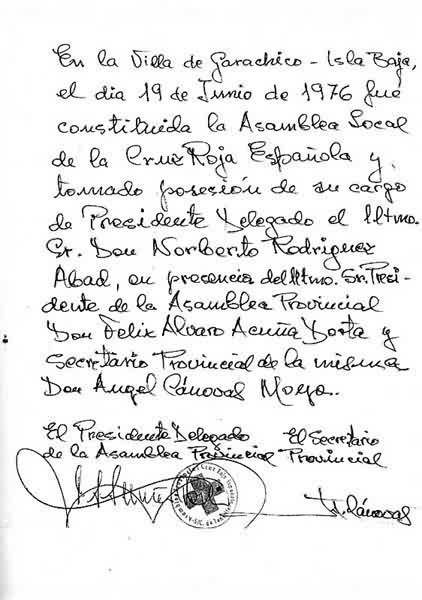 En la Villa de Garachico - Isla Baja,
el dia 19 de Junio de 1976 fué
constituida la Asamblea Local
de la Cruz Roja Española y,
tomado posesión de su cargo
de Presidente Delegado el Iltmo.
Sr. Don Norberto Rodriguez
Abad, en presencia del Iltmo. Sr. Presi-
dente de la Asamblea Provincial
Don Felix Alvaro Acuña Dorta y
Secretario Provincial de la misma
Don Angel Cánovas Moyo..
El Presidente Delegado El Secretario
de la Asamblea Provincial Provincial
Cruz Roja
A. Cánovas